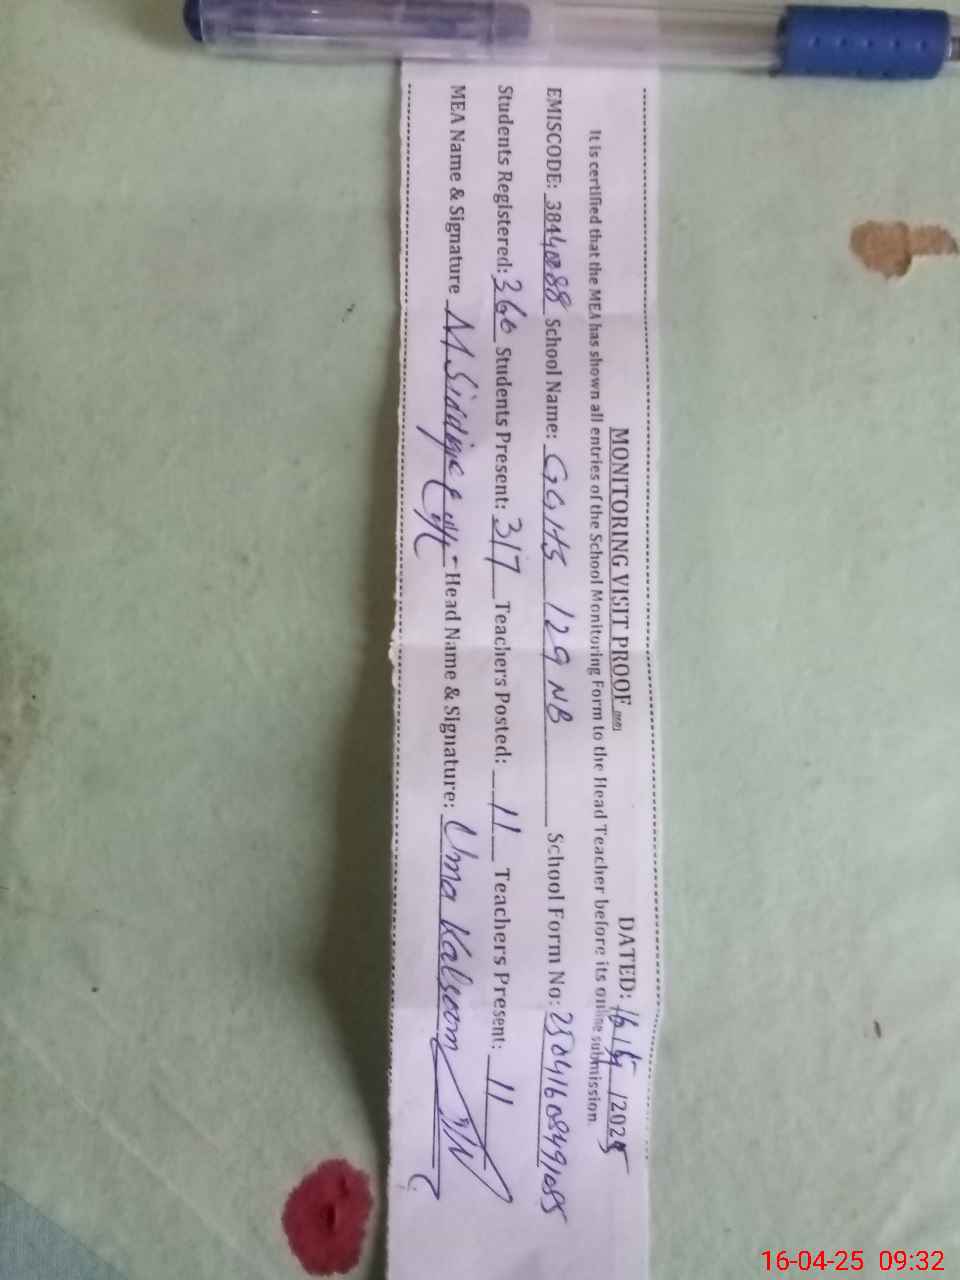 MONITORING VISIT PROOF
DATED: 16/4/2025
It is certified that the MEA has shown all entries of the School Monitoring Form to the Head Teacher before its online submission.
EMISCODE: 38440088 School Name: GGHS 129 NB School Form No: 25041608491055
Students Registered: 360 Students Present: 317 Teachers Posted: 11 Teachers Present: 11
MEA Name & Signature M. Siddique Head Name & Signature: Uma Kalsoom
16-04-25 09:32